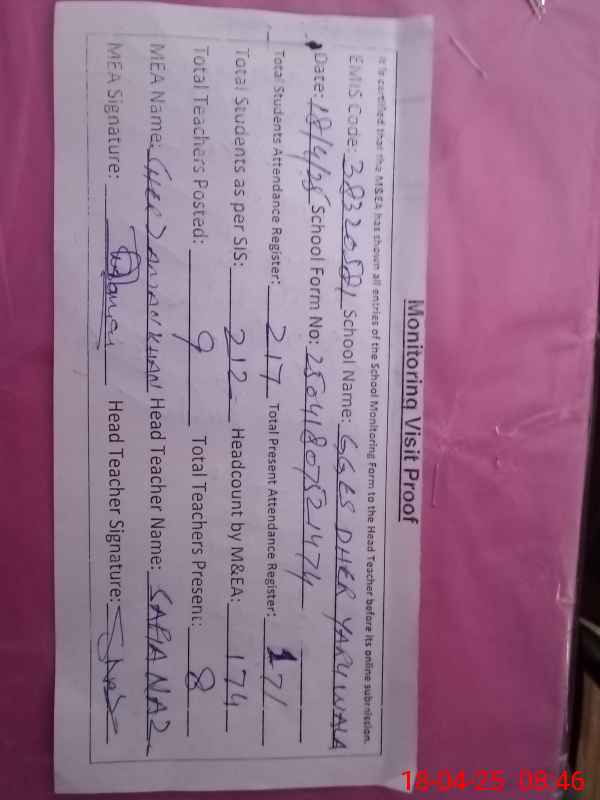 Monitoring Visit Proof
It is certified that the M&EA has shown all entries of the School Monitoring Form to the Head Teacher before its online submission.
EMIS Code: 38320581 School Name: GGES DHER YARU WALA
Date: 18/4/25 School Form No: 25041807521474
Total Students Attendance Register: 217 Total Present Attendance Register: 171
Total Students as per SIS: 212 Headcount by M&EA: 174
Total Teachers Posted: 9 Total Teachers Present: 8
MEA Name: SHER JAMAN KHAN Head Teacher Name: SAFIA NAZ
MEA Signature: Head Teacher Signature:
18-04-25 08:46